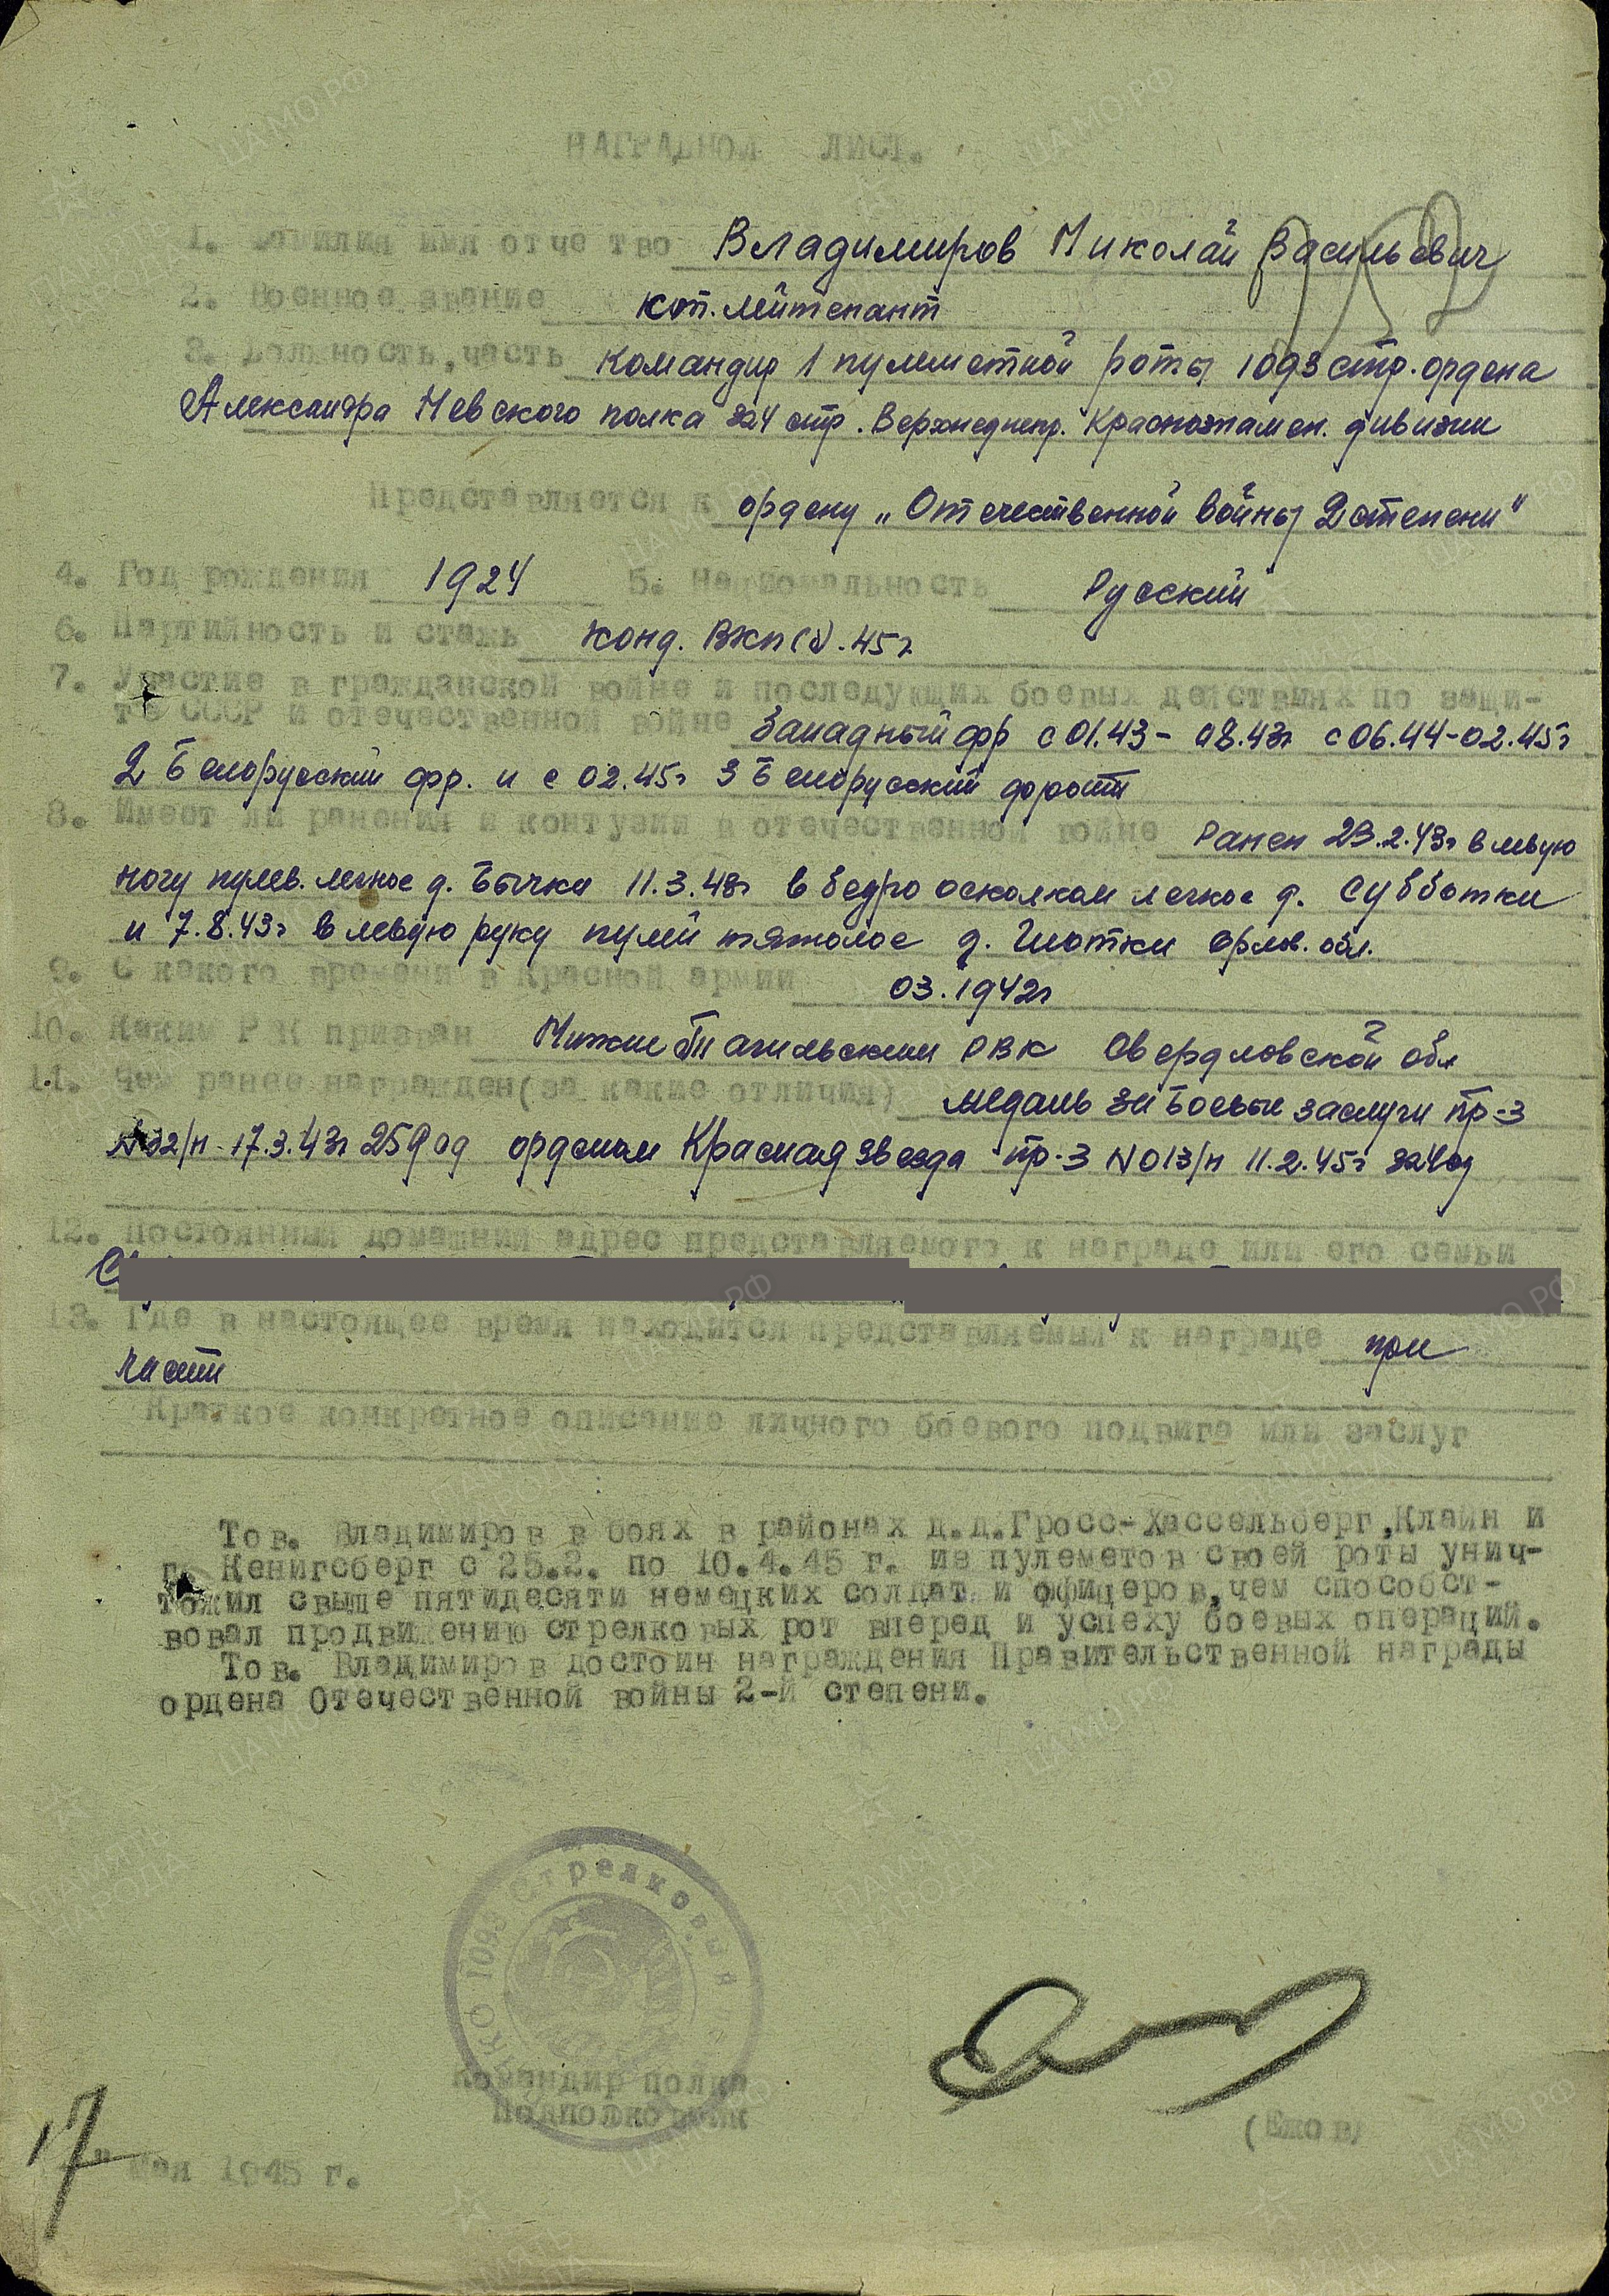 НАГРАДНОЙ ЛИСТ.
1. Фамилия имя отче тво Владимиров Николай Васильевич
2. Военное звание лейтенант
3. Должность, часть Командир 1 пулеметной роты 1093 стр. ордена
Александра Невского полка 324 стр. Верхнеднепр. Краснознамен. дивизии
Представляется к ордену „Отечественной войны 2 степени"
4. Год рождения 1924 5. Национальность Русский
6. Партийность и стаж Канд. ВКП(б). 45г
7. Участие в гражданской войне и последующих боевых действиях по защи-
те СССР и отечественной войне Западный фр с 01.43 - 08.43г с 06.44-02.45г
2 Белорусский фр. и с 02.45г 3 Белорусский фронт
8. Имеет ли ранения и контузии в отечественной войне Ранен 23.2.43г в левую
ногу пулев. легкое д. Бычки 11.3.43г в бедро осколком легкое д. Субботки
и 7.8.43г в левую руку пулей тяжолое д. Орлов. обл.
9. С какого времени в Красной армии 03.1942г
10. Каким Р К призван Нижне Тагильским РВК Свердловской обл
11. Чем ранее награжден(за какие отличия) медаль за Боевые заслуги пр-з
№02/н - 17.3.43г орденом Красная звезда пр-з №013/н 11.2.45г 324 сд
12. Постоянный домашний адрес представляемого к награде или его семьи
13. Где в настоящее время находится представляемый к награде при
части
Краткое конкретное описание личного боевого подвига или заслуг
Тов. Владимиров в боях в районах д.д.Гросс-Хассельберг,Клайн и
г. Кенигсберг с 25.2. по 10.4.45 г. из пулеметов своей роты унич-
тожил свыше пятидесяти немецких солдат и офицеров,чем способст-
вовал продвижению стрелковых рот вперед и успеху боевых операций.
Тов. Владимиров достоин награждения Правительственной награды
ордена Отечественной войны 2-й степени.
1093 Стрелковый
Командир полка
Подполковник
(Ежов)
17 " мая 1945 г.
ЦАМО.РФ
ПАМЯТЬ
НАРОДА